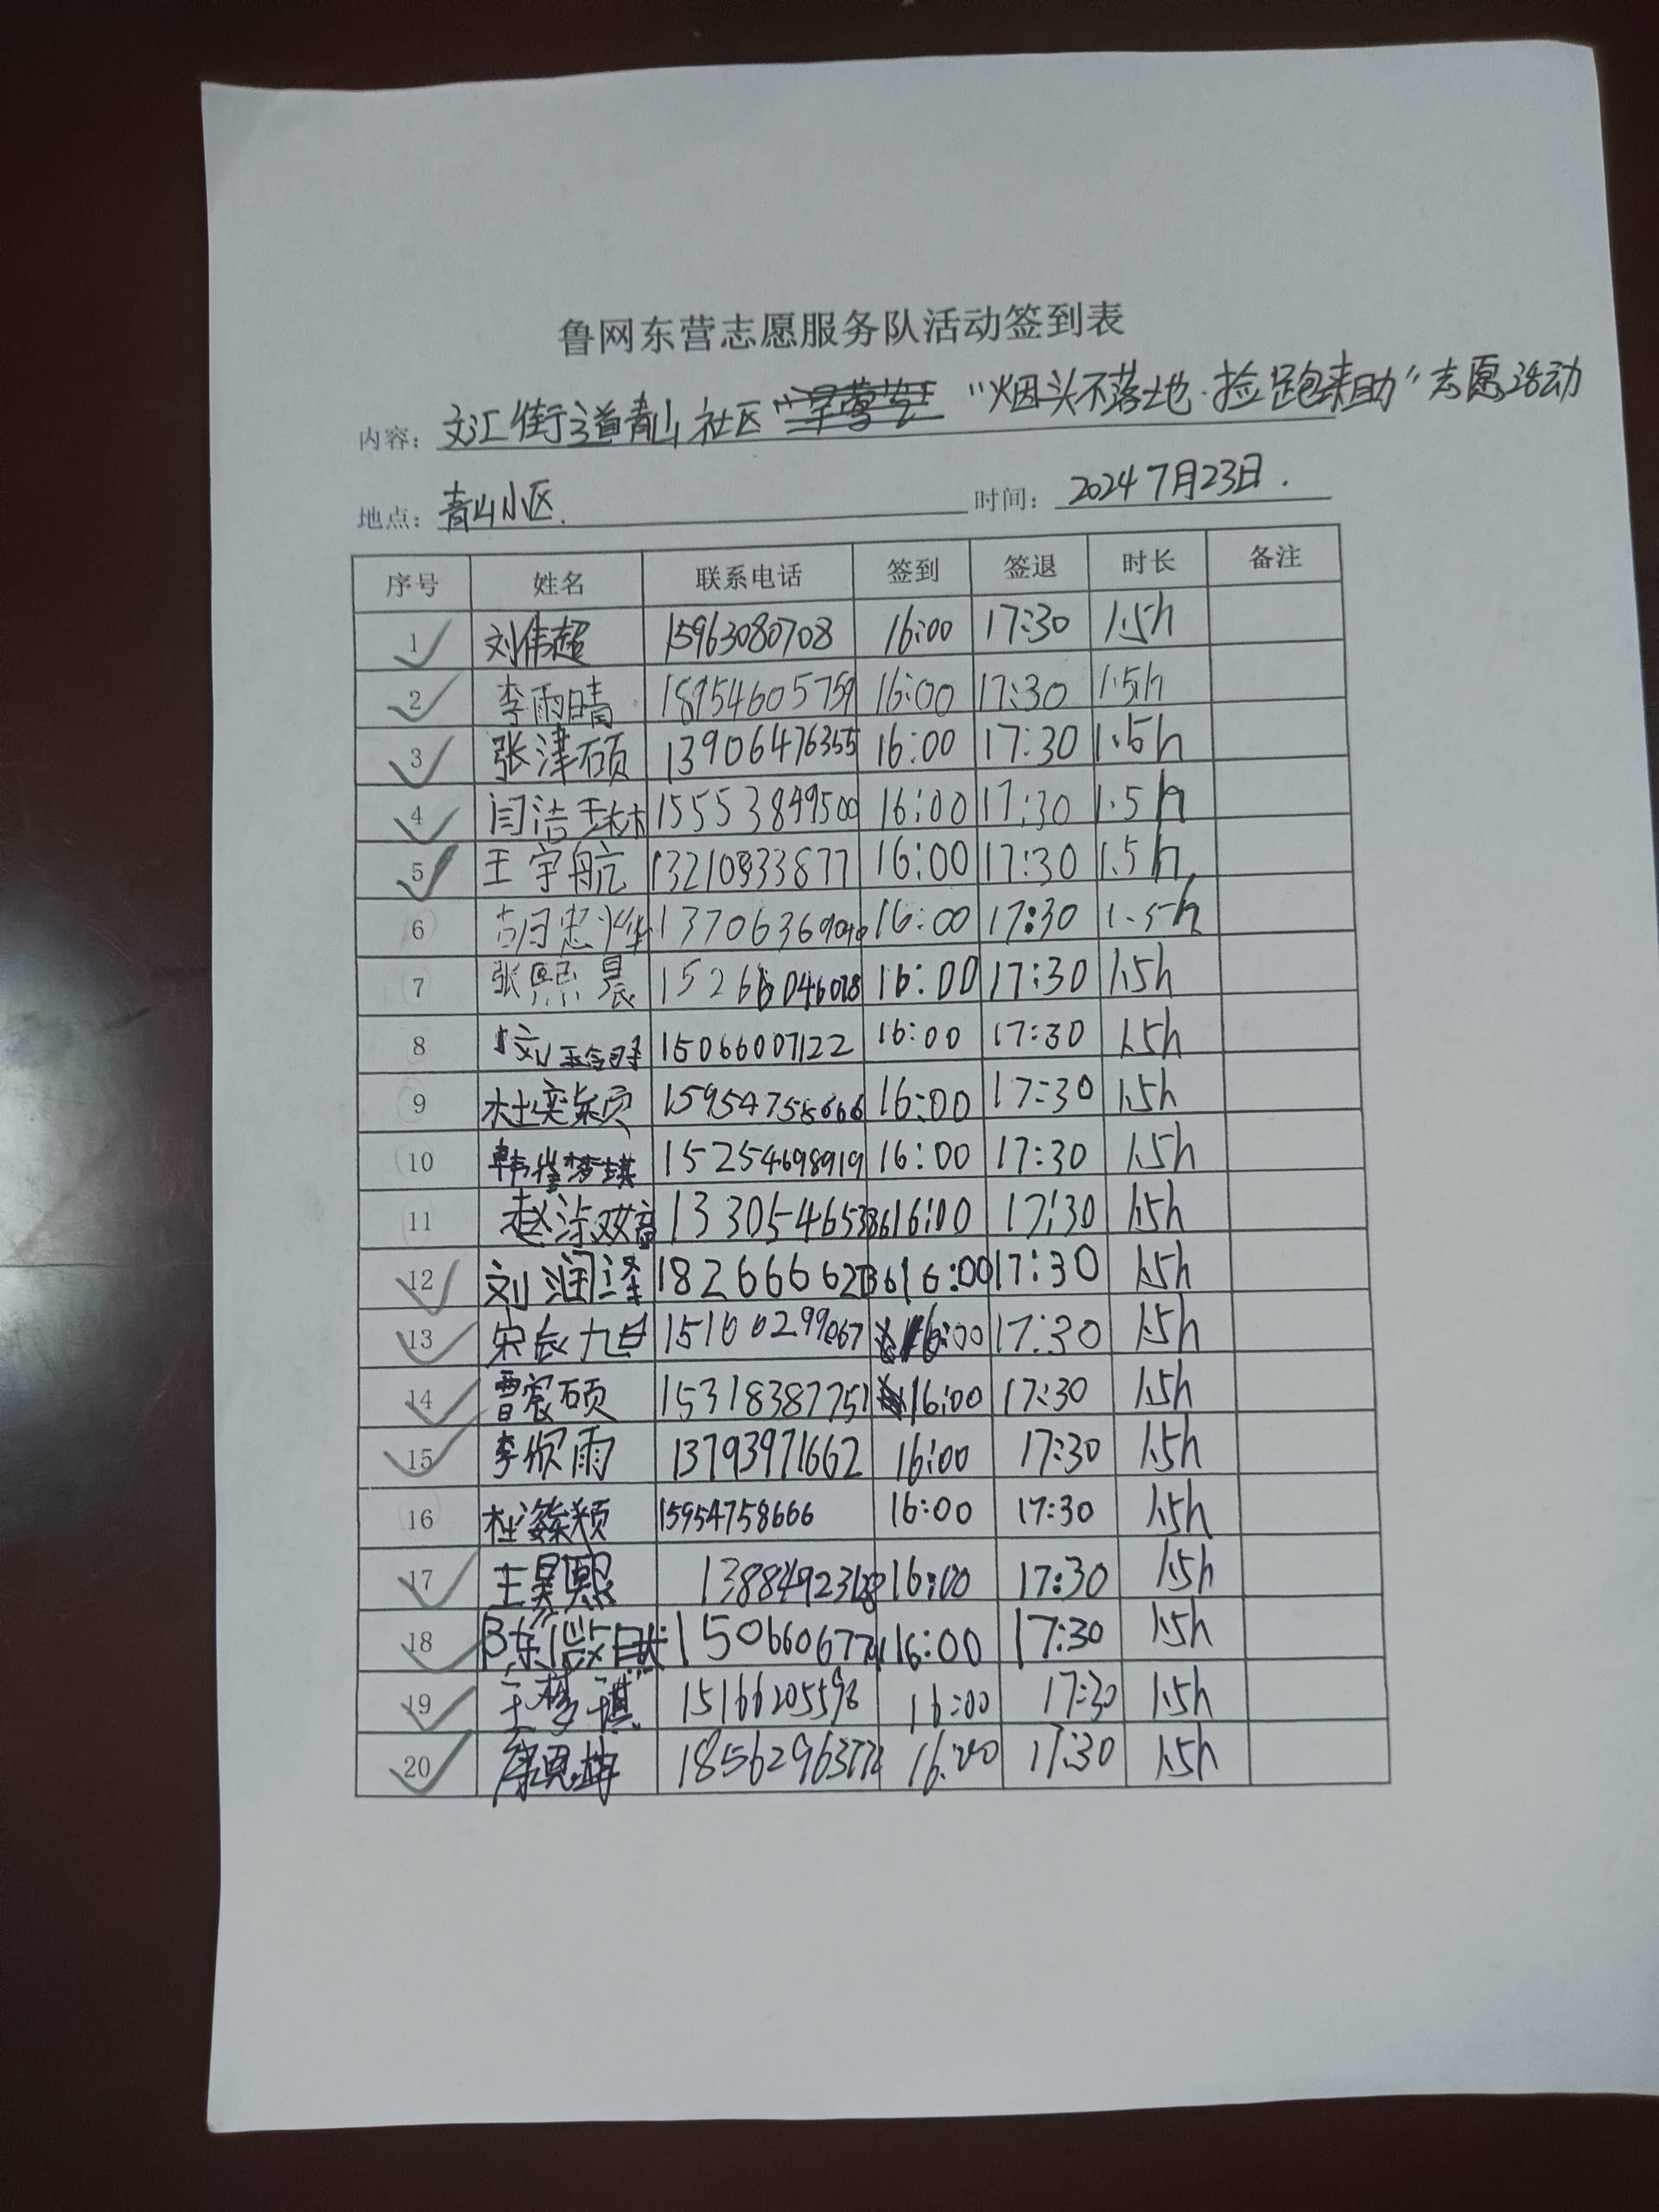 鲁网东营志愿服务队活动签到表
内容: 文汇街道青山社区 "烟头不落地·捡跑来助"志愿活动
地点: 青山小区. 时间: 2024 7月23日.
序号 姓名 联系电话 签到 签退 时长 备注
1 刘伟超 15963080708 16:00 17:30 1.5h
2 李雨晴 18954605759 16:00 17:30 1.5h
3 张津硕 13906476355 16:00 17:30 1.5h
4 闫洁琳 15553849500 16:00 17:30 1.5h
5 王宇航 13210833877 16:00 17:30 1.5h
6 胡忠烨 16:00 17:30 1.5h
7 张熙晨 16:00 17:30 1.5h
8 15066007122 16:00 17:30 1.5h
9 杜奕颖 15954758666 16:00 17:30 1.5h
10 韩梦琪 15254698919 16:00 17:30 1.5h
11 16:00 17:30 1.5h
12 刘润泽 16:00 17:30 1.5h
13 宋辰旭 16:00 17:30 1.5h
14 曹宸硕 15318387751 16:00 17:30 1.5h
15 李欣雨 13793971662 16:00 17:30 1.5h
16 15954758666 16:00 17:30 1.5h
17 王昊熙 16:00 17:30 1.5h
18 16:00 17:30 1.5h
19 王梦琪 15166205598 16:00 17:30 1.5h
20 康恩坤 16:00 17:30 1.5h